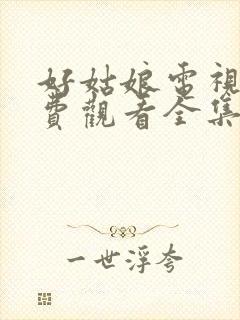 好姑娘電視
費觀看全集
一世浮夸